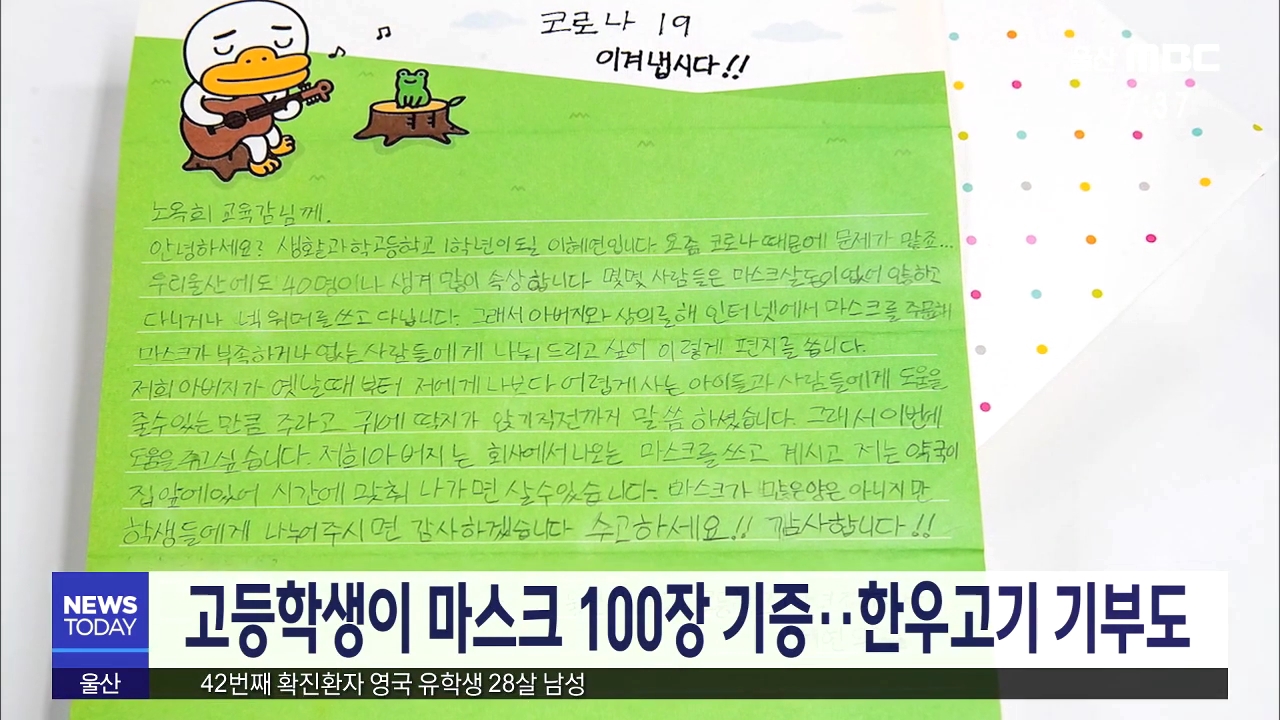 코로나 19
이겨냅시다!!
울산 MBC
37
노옥희 교육감님께.
안녕하세요? 생활과학고등학교 1학년이 될 이혜연입니다. 요즘 코로나 때문에 문제가 많죠...
우리울산에도 40명이나 생겨 많이 속상합니다. 몇몇 사람들은 마스크살돈이 없어 안하고
다니거나 넥워머를쓰고 다닙니다. 그래서 아버지와 상의를해 인터넷에서 마스크를 주문해
마스크가 부족하거나 없는 사람들에게 나눠 드리고 싶어 이렇게 편지를 씁니다.
저희 아버지가 옛날때부터 저에게 나보다 어렵게 사는 아이들과 사람들에게 도움을
줄수있는 만큼 주라고 귀에 딱지가 앉기직전까지 말씀 하셨습니다. 그래서 이번에
도움을 주고싶습니다. 저희아버지는 회사에서 나오는 마스크를 쓰고 계시고 저는 약국이
집 앞에있어 시간에 맞춰 나가면 살수있습니다. 마스크가 많은양은 아니지만
학생들에게 나누어주시면 감사하겠습니다 수고하세요!! 감사합니다!!
NEWS TODAY
고등학생이 마스크 100장 기증··한우고기 기부도
울산 42번째 확진환자 영국 유학생 28살 남성